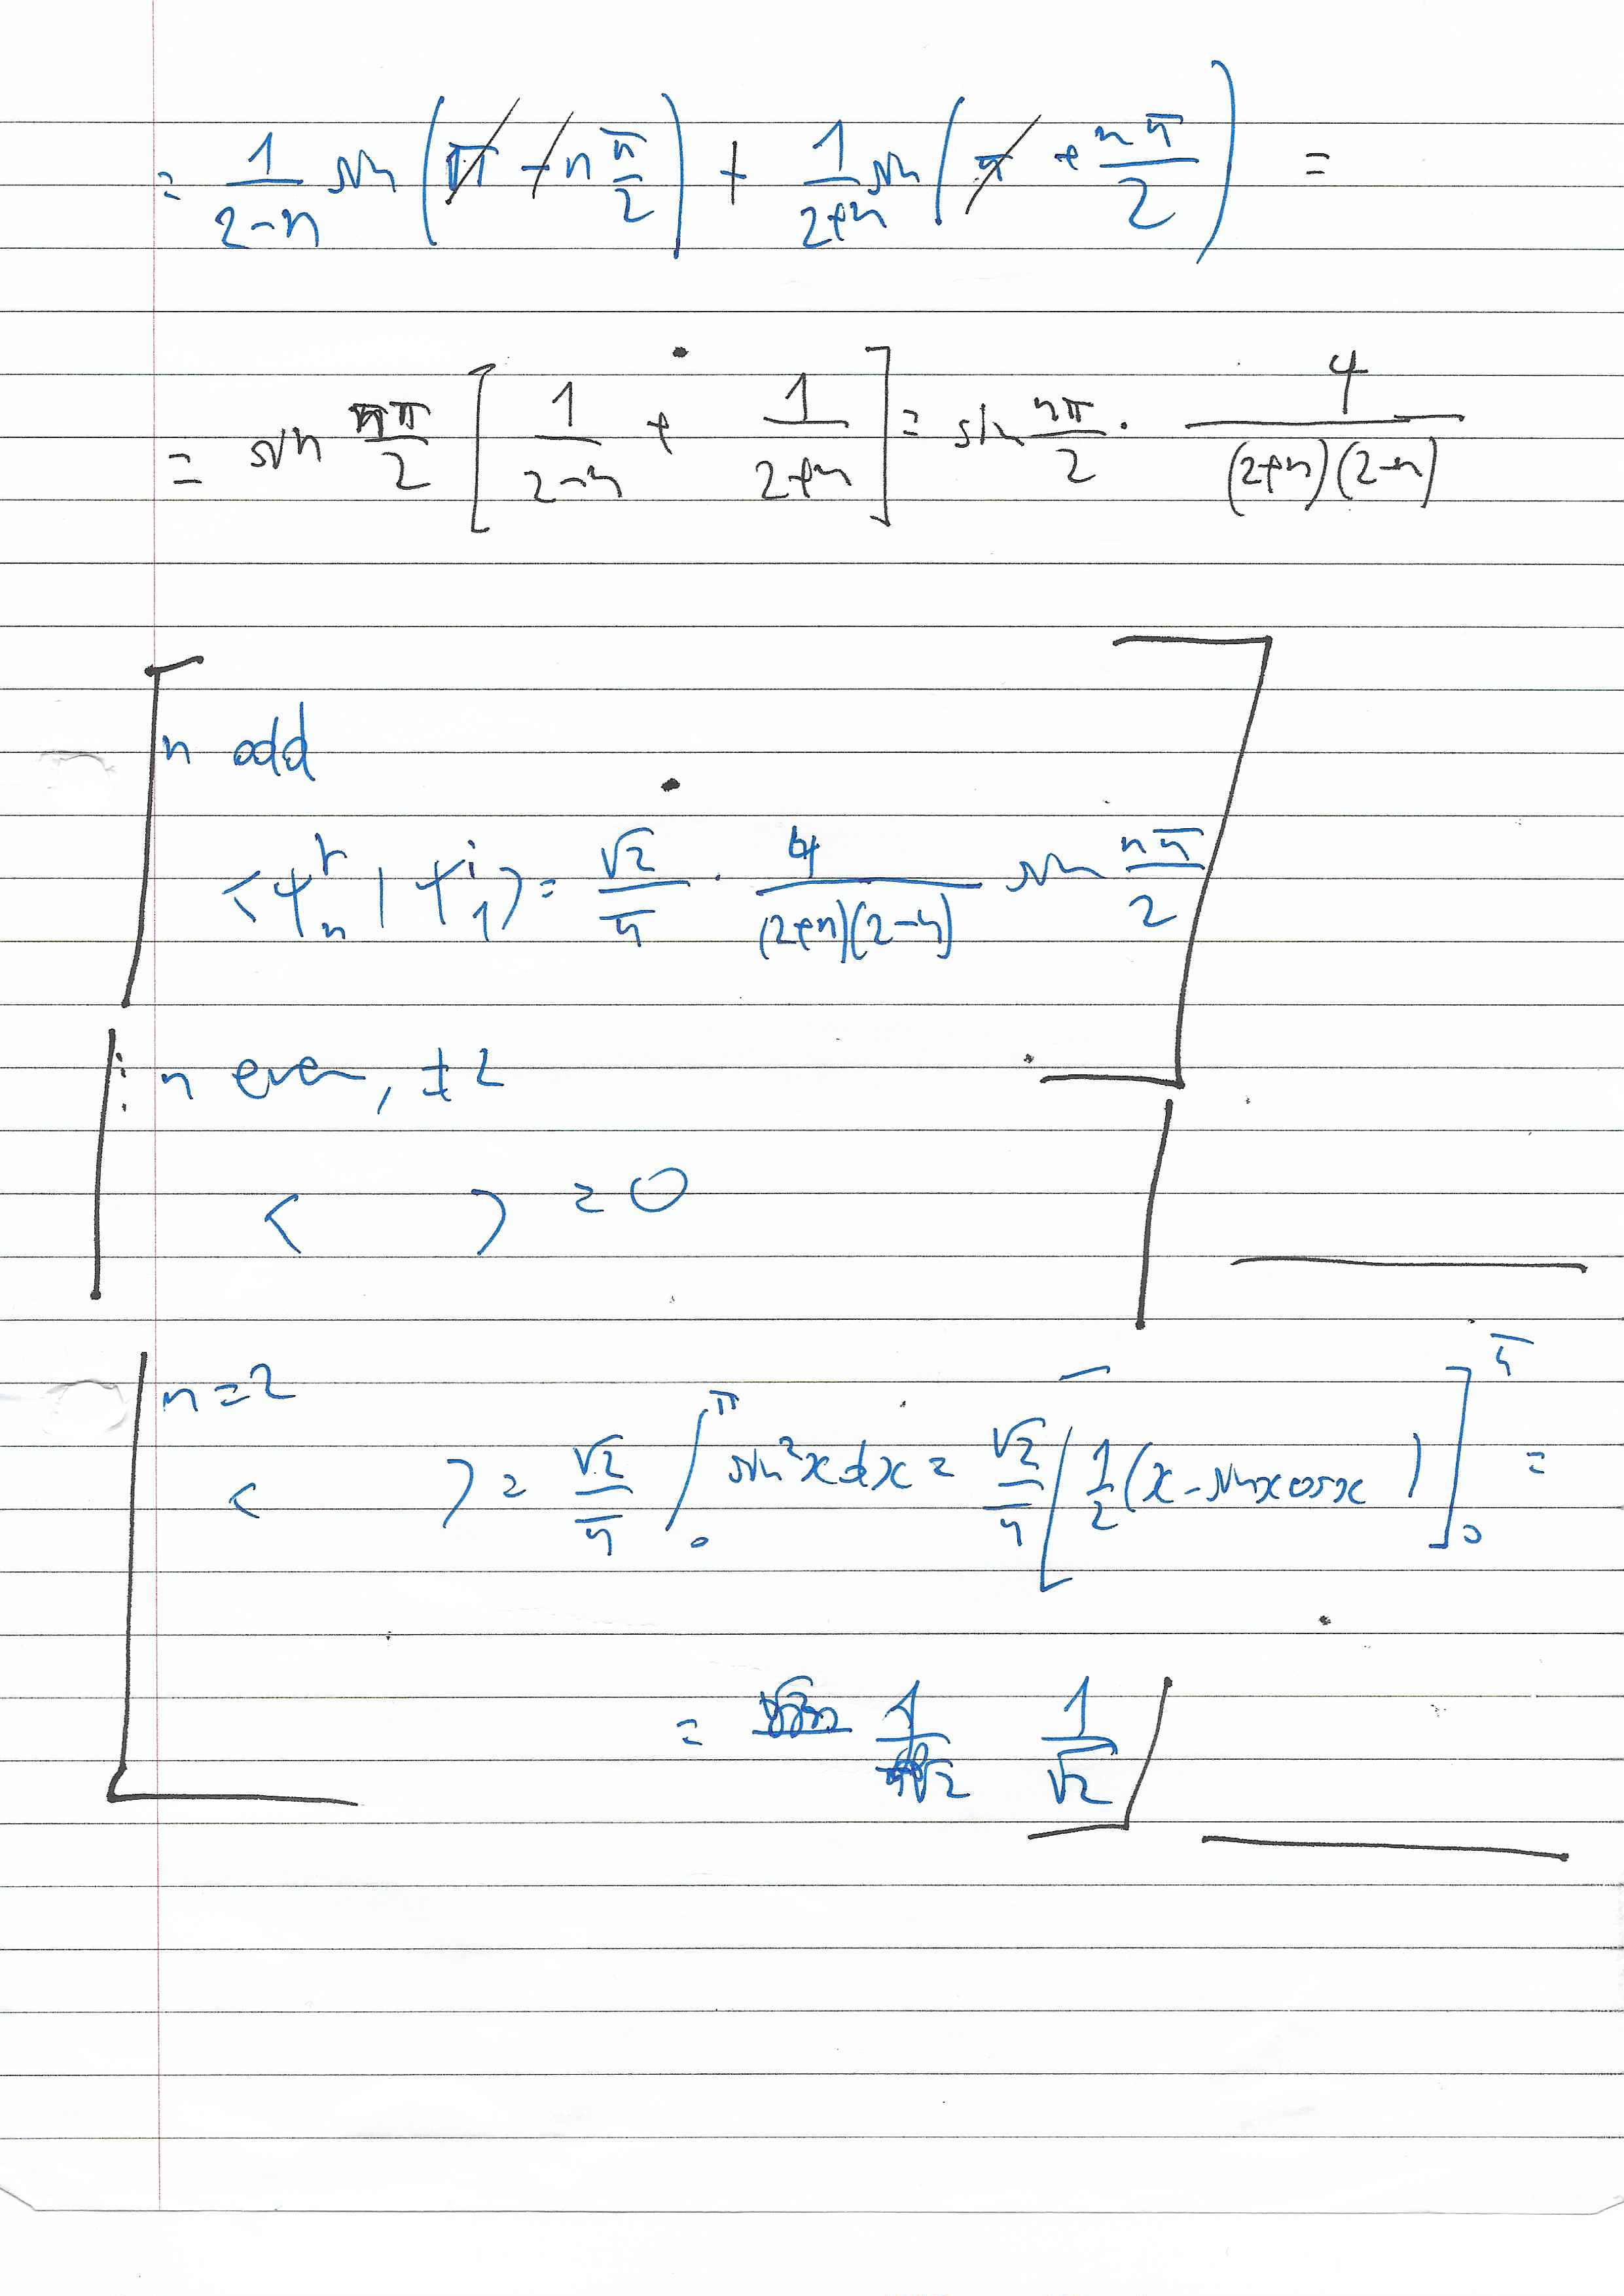 = 1/(2-n) sin (π - n π/2) + 1/(2+n) sin (π + nπ/2) =
= sin nπ/2 [ 1/(2-n) + 1/(2+n) ] = sin nπ/2 · 4/((2+n)(2-n))
n odd
<ψ_n^r | ψ_1^i> = √2/π · 4/((2+n)(2-n)) sin nπ/2
n even, ≠2
< > = 0
n=2
< > = √2/π ∫_0^π sin²x dx = √2/π [ 1/2 (x - sinx cosx) ]_0^π =
= 1/√2 1/√2